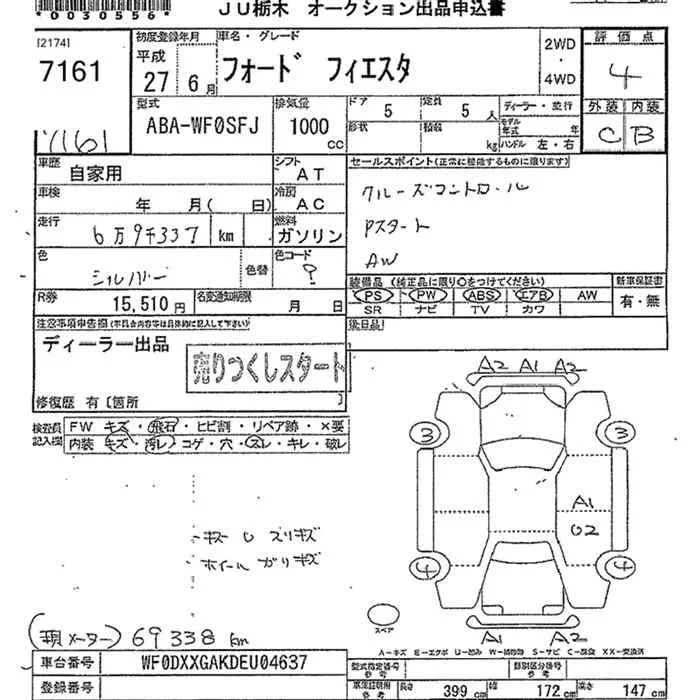 *0030556*
JU栃木 オークション出品申込書
[2174]
7161
初度登録年月
平成
27 6月
車名・グレード
フォード フィエスタ
2WD
・
4WD
評価点
4
型式
ABA-WF0SFJ
排気量
1000
cc
ドア
5
定員
5人
形状
積載
kg
ディーラー・並行
モデル年式 年
ハンドル 左・右
外装 内装
C B
車歴
自家用
シフト
AT
セールスポイント(正常に稼働するものに限ります)
クルーズコントロール
Pスタート
AW
車検
年 月( 日)
冷房
AC
走行
6万9千337 km
燃料
ガソリン
色
シルバー
色替
色コード
?
装備品 (純正品に限り○をつけてください)
PS PW ABS エアB AW
SR ナビ TV カワ
新車保証書
有・無
R券
15,510円
名変通知期限
月 日
後日品
注意事項申告欄(不具合内容等は具体的に記入して下さい)
ディーラー出品
売りつくしスタート
修復歴 有〔箇所 〕
検査員記入欄
FW キズ・飛石・ヒビ割・リペア跡・×要
内装 キズ・汚レ・コゲ・穴・スレ・キレ・破レ
A2 A1 A2
3 3
A1
02
4 4
A1 A2
スペア
キズ U スリキズ
ホイール ガリキズ
(現メーター) 69338 km
A-キズ E-エクボ U-凹み W-補修跡 S-サビ C-腐食 XX-交換済
車台番号
WF0DXXGAKDEU04637
登録番号
型式指定番号
参考
類別区分番号
参考
車検証情報
参考
長さ 399 cm
幅 172 cm
高さ 147 cm